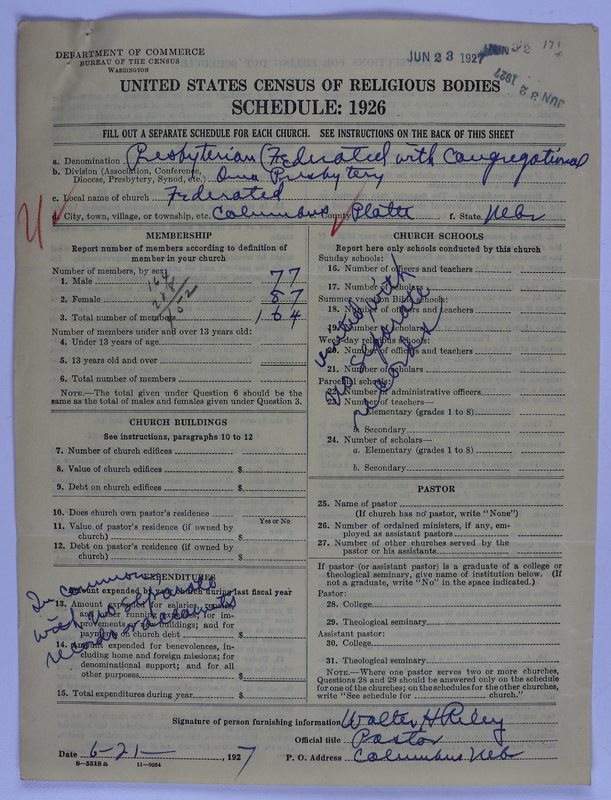 DEPARTMENT OF COMMERCE
BUREAU OF THE CENSUS
WASHINGTON
JUN 23 1927
171
UNITED STATES CENSUS OF RELIGIOUS BODIES
SCHEDULE: 1926
FILL OUT A SEPARATE SCHEDULE FOR EACH CHURCH. SEE INSTRUCTIONS ON THE BACK OF THIS SHEET
a. Denomination Presbyterian (Federated with Congregational
b. Division (Association, Conference, Diocese, Presbytery, Synod, etc.) Oma Presbytery
c. Local name of church Federated
d. City, town, village, or township, etc. Columbus County Platte f. State Nebr
MEMBERSHIP
Report number of members according to definition of
member in your church
Number of members, by sex:
1. Male 77
2. Female 87
3. Total number of members 164
Number of members under and over 13 years old:
4. Under 13 years of age
5. 13 years old and over
6. Total number of members
NOTE.—The total given under Question 6 should be
same as the total of males and females given under Question 3.
CHURCH BUILDINGS
See instructions, paragraphs 10 to 12
7. Number of church edifices
8. Value of church edifices $
9. Debt on church edifices $
10. Does church own pastor's residence
Yes or No
11. Value of pastor's residence (if owned by
church) $
12. Debt on pastor's residence (if owned by
church) $
EXPENDITURES
Amount expended by your church during last fiscal year
13. Amount expended for salaries, repairs,
and other running expenses; for im-
provements and buildings; and for
payments on church debt $
14. Amount expended for benevolences, in-
cluding home and foreign missions; for
denominational support; and for all
other purposes $
15. Total expenditures during year $
In common
with no separate
records or accounts
CHURCH SCHOOLS
Report here only schools conducted by this church
Sunday schools:
16. Number of officers and teachers
17. Number of scholars
Summer vacation Bible schools:
18. Number of officers and teachers
19. Number of scholars
Week-day religious schools:
20. Number of officers and teachers
21. Number of scholars
Parochial schools:
22. Number of administrative officers
23. Number of teachers—
a. Elementary (grades 1 to 8)
b. Secondary
24. Number of scholars—
a. Elementary (grades 1 to 8)
b. Secondary
united with
no separate
records
PASTOR
25. Name of pastor
(If church has no pastor, write "None")
26. Number of ordained ministers, if any, em-
ployed as assistant pastors
27. Number of other churches served by the
pastor or his assistants
If pastor (or assistant pastor) is a graduate of a college or
theological seminary, give name of institution below. (If
not a graduate, write "No" in the space indicated.)
Pastor:
28. College
29. Theological seminary
Assistant pastor:
30. College
31. Theological seminary
NOTE.—Where one pastor serves two or more churches,
Questions 28 and 29 should be answered only on the schedule
for one of the churches; on the schedules for the other churches,
write "See schedule for church."
Signature of person furnishing information Walter H Riley
Official title Pastor
Date 6-21-, 1927 P. O. Address Columbus Nebr
8-5518 a 11-9034